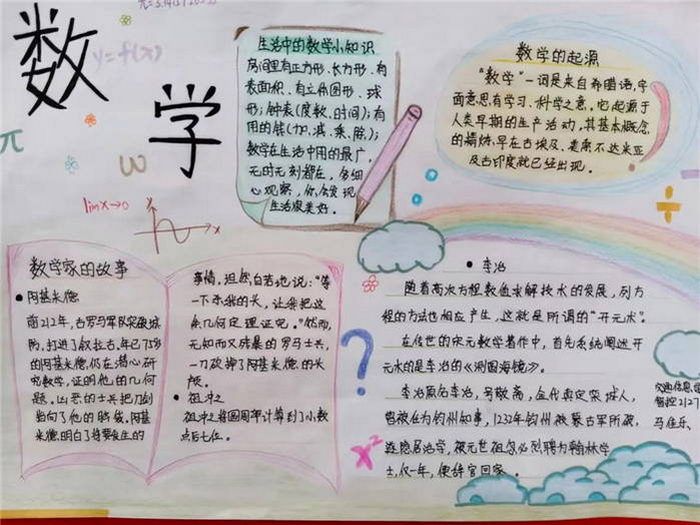 数学
y=f(x)
π
ω
lim x→0
x
生活中的数学小知识
房间里有正方形、长方形、有
表面积、有立体图形、球
形；钟表(度数、时间)；有
用的钱(加、减、乘、除)；
数学在生活中用的最广，
无时无刻都在，多细
心观察，你会发现
生活很美好。
数学的起源
“数学”一词是来自希腊语，字
面意思有学习、科学之意。它起源于
人类早期的生产活动，其基本概念
的精炼，早在古埃及、美索不达米亚
及古印度就已经出现。
数学家的故事
•阿基米德
前212年，古罗马军队突破城
防，打进了叙拉古，年已75岁
的阿基米德，仍在潜心研
究数学，证明他的几何
题。凶恶的士兵把刀剑
指向了他的胳膊。阿基
米德明白了将要发生的
事情，坦然自若地说：“等
一下杀我的头，让我把这
条几何定理证完。”然而，
无知而又残暴的罗马士兵，
一刀砍掉了阿基米德的头
颅。
•祖冲之
祖冲之将圆周率计算到了小数
点后七位。
•李冶
随着高次方程数值求解技术的发展，列方
程的方法也相应产生，这就是所谓的“开元术”。
在传世的宋元数学著作中，首先系统阐述开
元术的是李冶的《测圆海镜》。
李冶原名李治，号敬斋，金代真定栾城人，
曾被任为钧州知事，1232年钧州被蒙古军所破，
遂隐居治学，被元世祖忽必烈聘为翰林学
士，仅一年，便辞官回家。
?
x²
÷
交通信息
智控2127
马佳乐